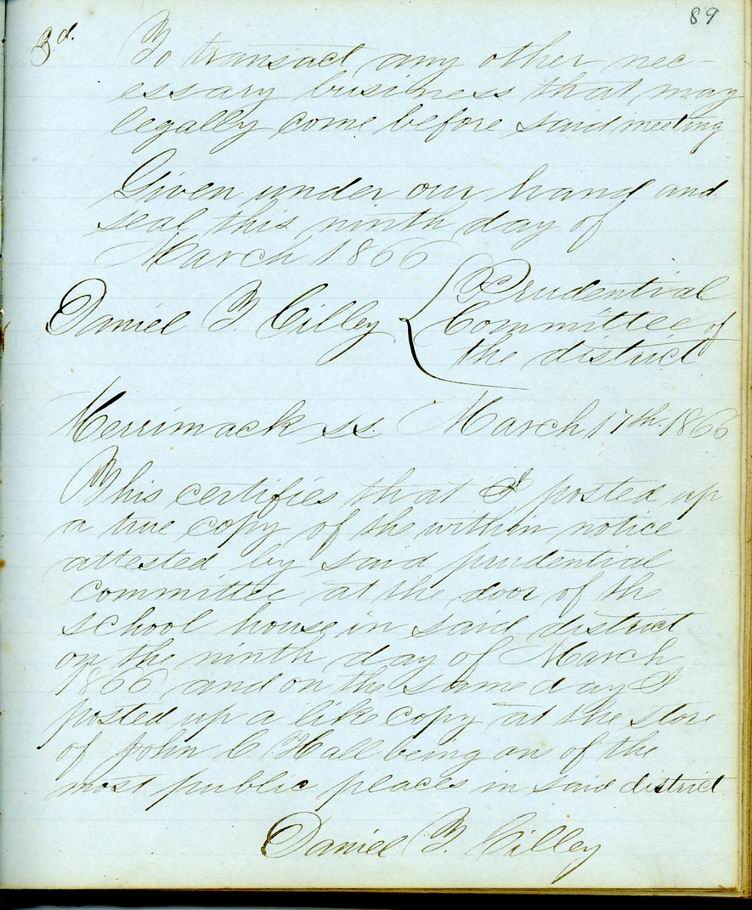 89
3d. To transact any other nec-
essary business that may
legally come before said meeting
Given under our hand and
seal this ninth day of
March 1866
Daniel F Cilley { Prudential
Committee of
the district
Merrimack ss March 17th 1866
This certifies that I posted up
a true copy of the within notice
attested by said prudential
committee at the door of the
school house in said district
on the ninth day of March
1866 and on the same day I
posted up a like copy at the store
of John C. Hall being one of the
most public places in said district
Daniel F. Cilley